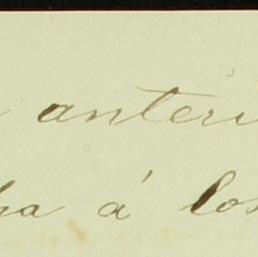 anteri
ha á los